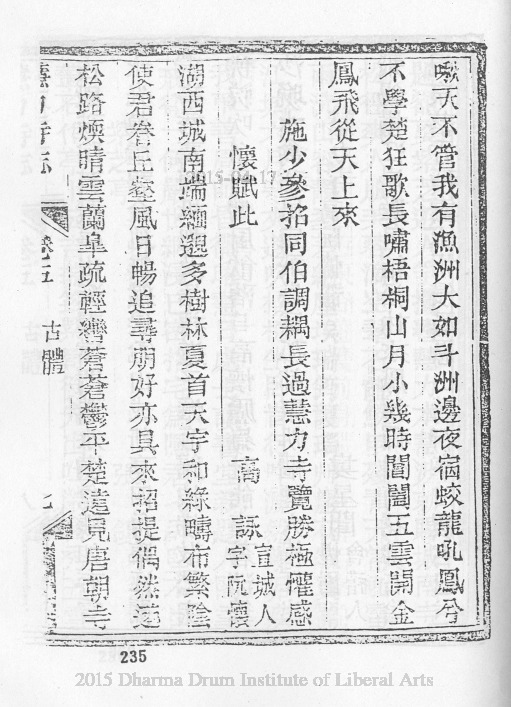 啾天不管我有漁洲大如斗洲邊夜宿蛟龍吼鳳兮
不學楚狂歌長嘯梧桐山月小幾時閶闔五雲開金
鳳飛從天上來
施少參招同伯調耦長過慧力寺覽勝極懽感
懷賦此
高詠
宣城人
字阮懷
湖西城南端緬邈多樹林夏首天宇和綠疇布繁陰
使君眷丘壑風日暢追尋朋好亦具來招提偶然
松路煥晴雲蘭皐疏輕蒼蒼欎平楚遠見唐朝寺
慧力寺志
卷五
古體
七
235
2015 Dharma Drum Institute of Liberal Arts